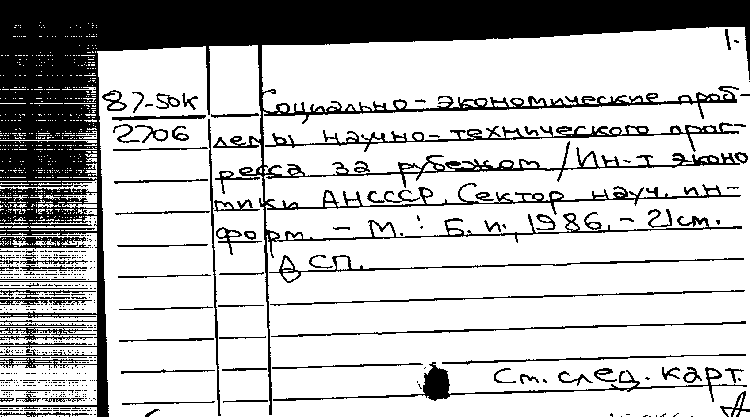 1.
87-50к Социально-экономические проб-
2706 лемы научно-технического прог-
ресса за рубежом / Ин-т эконо
мики АНСССР, Сектор науч. ин-
форм. - М. : Б. и., 1986. - 21 см.
ДСП.
См. след. карт.